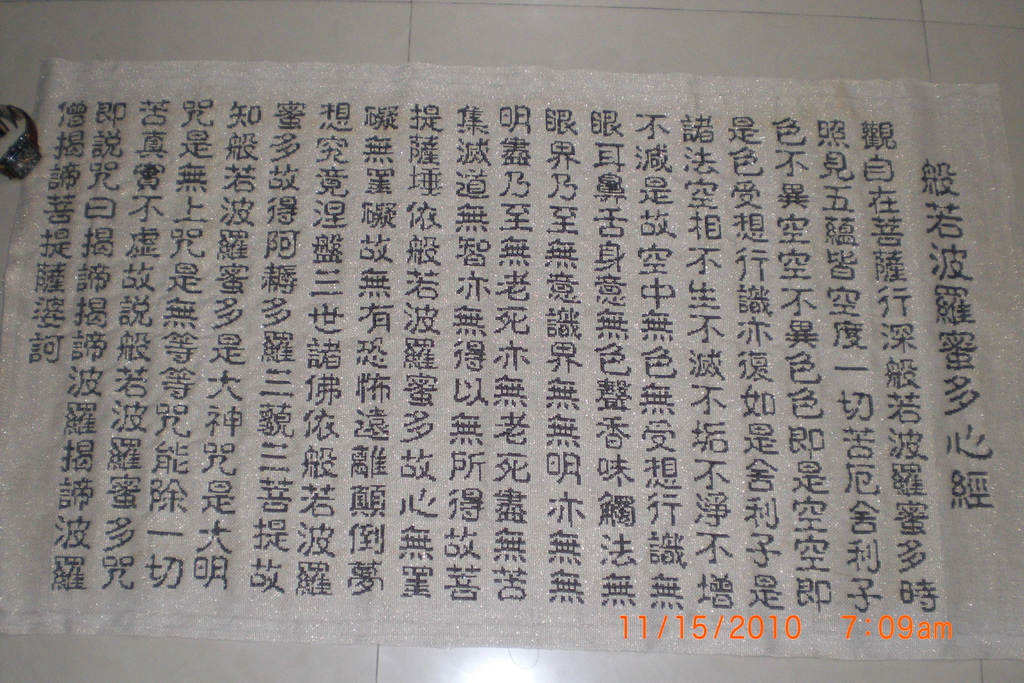 般若波羅蜜多心經
觀自在菩薩行深般若波羅蜜多時
照見五蘊皆空度一切苦厄舍利子
色不異空空不異色色即是空空即
是色受想行識亦復如是舍利子是
諸法空相不生不滅不垢不淨不增
不減是故空中無色無受想行識無
眼耳鼻舌身意無色聲香味觸法無
眼界乃至無意識界無無明亦無無
明盡乃至無老死亦無老死盡無苦
集滅道無智亦無得以無所得故菩
提薩埵依般若波羅蜜多故心無罣
礙無罣礙故無有恐怖遠離顛倒夢
想究竟涅盤三世諸佛依般若波羅
蜜多故得阿耨多羅三藐三菩提故
知般若波羅蜜多是大神咒是大明
咒是無上咒是無等等咒能除一切
苦真實不虛故說般若波羅蜜多咒
即說咒曰揭諦揭諦波羅揭諦波羅
僧揭諦菩提薩婆訶
11/15/2010 7:09am